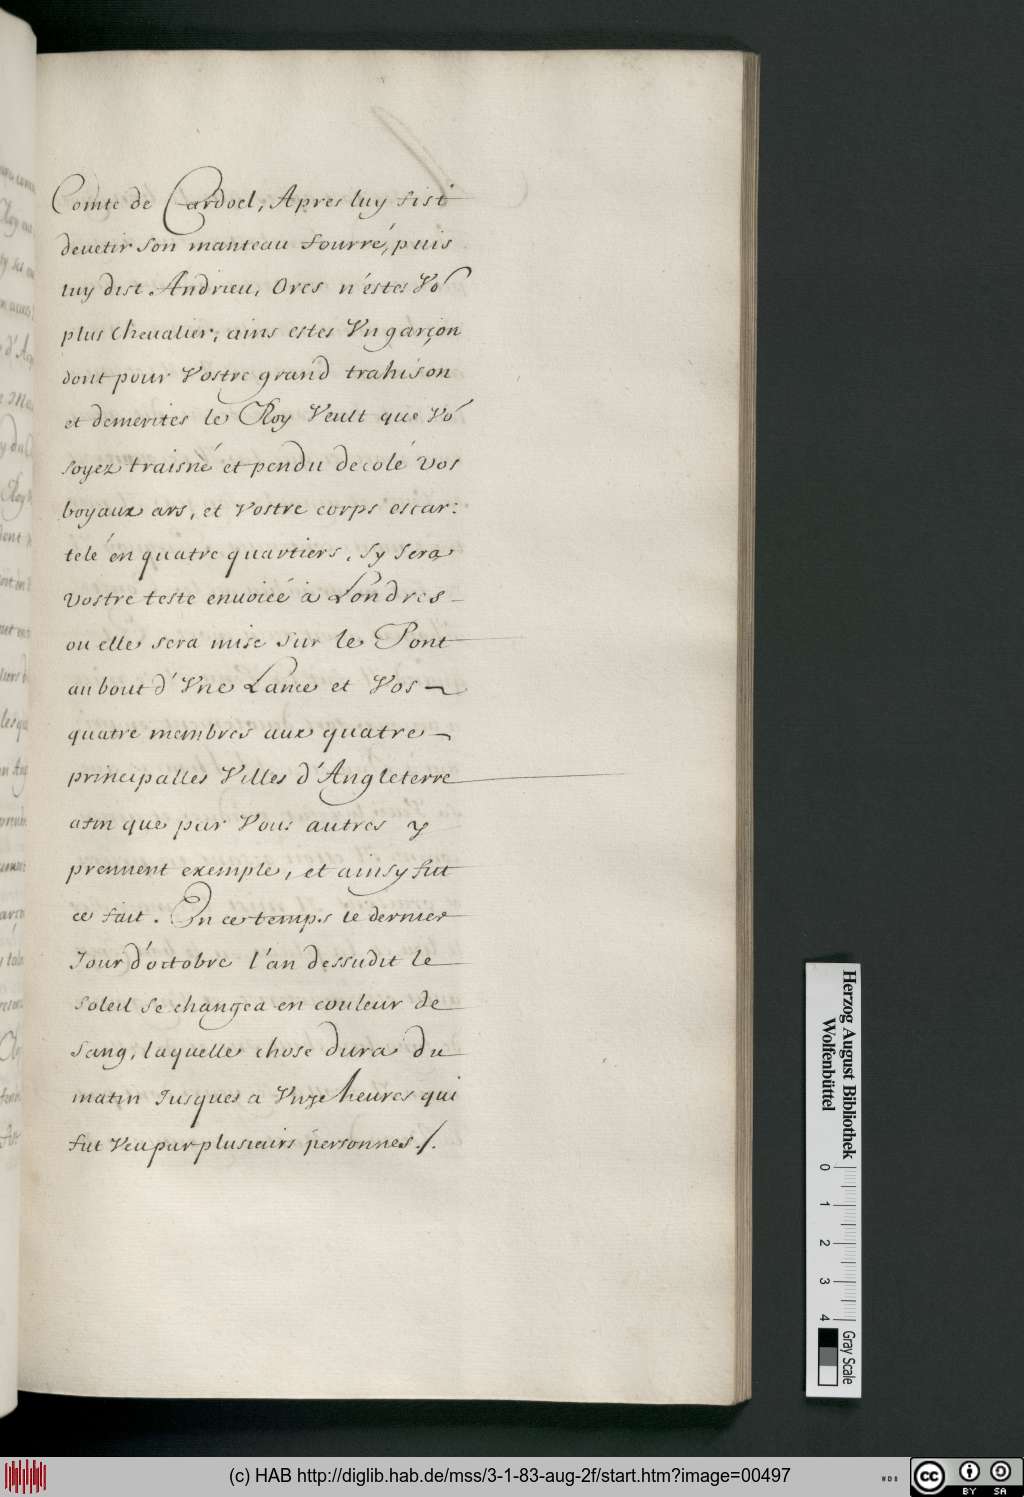 Comte de Cardoel, Apres luy fist
deuetir son manteau fourré, puis
luy dist Andrieu, Ores n'éstes Vo'
plus Cheualier, ains estes Vn garçon
dont pour Vostre grand trahison
et demerites le Roy Veult que Vo'
soyez traisné et pendu decolé vos
boyaux ars, et Vostre corps escar:
telé en quatre quartiers, sy sera
vostre teste enuoiée à Londres
ou elle sera mise sur le Pont
au bout d'Vne Lance et Vos
quatre membres aux quatre
principalles Villes d'Angleterre
afin que par Vous autres y
prennent exemple, et ainsy fut
ce fait. En ce temps le dernier
Jour d'octobre l'an dessudit le
soleil se changea en couleur de
sang, laquelle chose dura du
matin Jusques a Vnze heures qui
fut Veu par plusieurs personnes./.
Herzog August Bibliothek
Wolfenbüttel
0 1 2 3 4
Gray Scale
(c) HAB http://diglib.hab.de/mss/3-1-83-aug-2f/start.htm?image=00497
WDB
cc BY SA